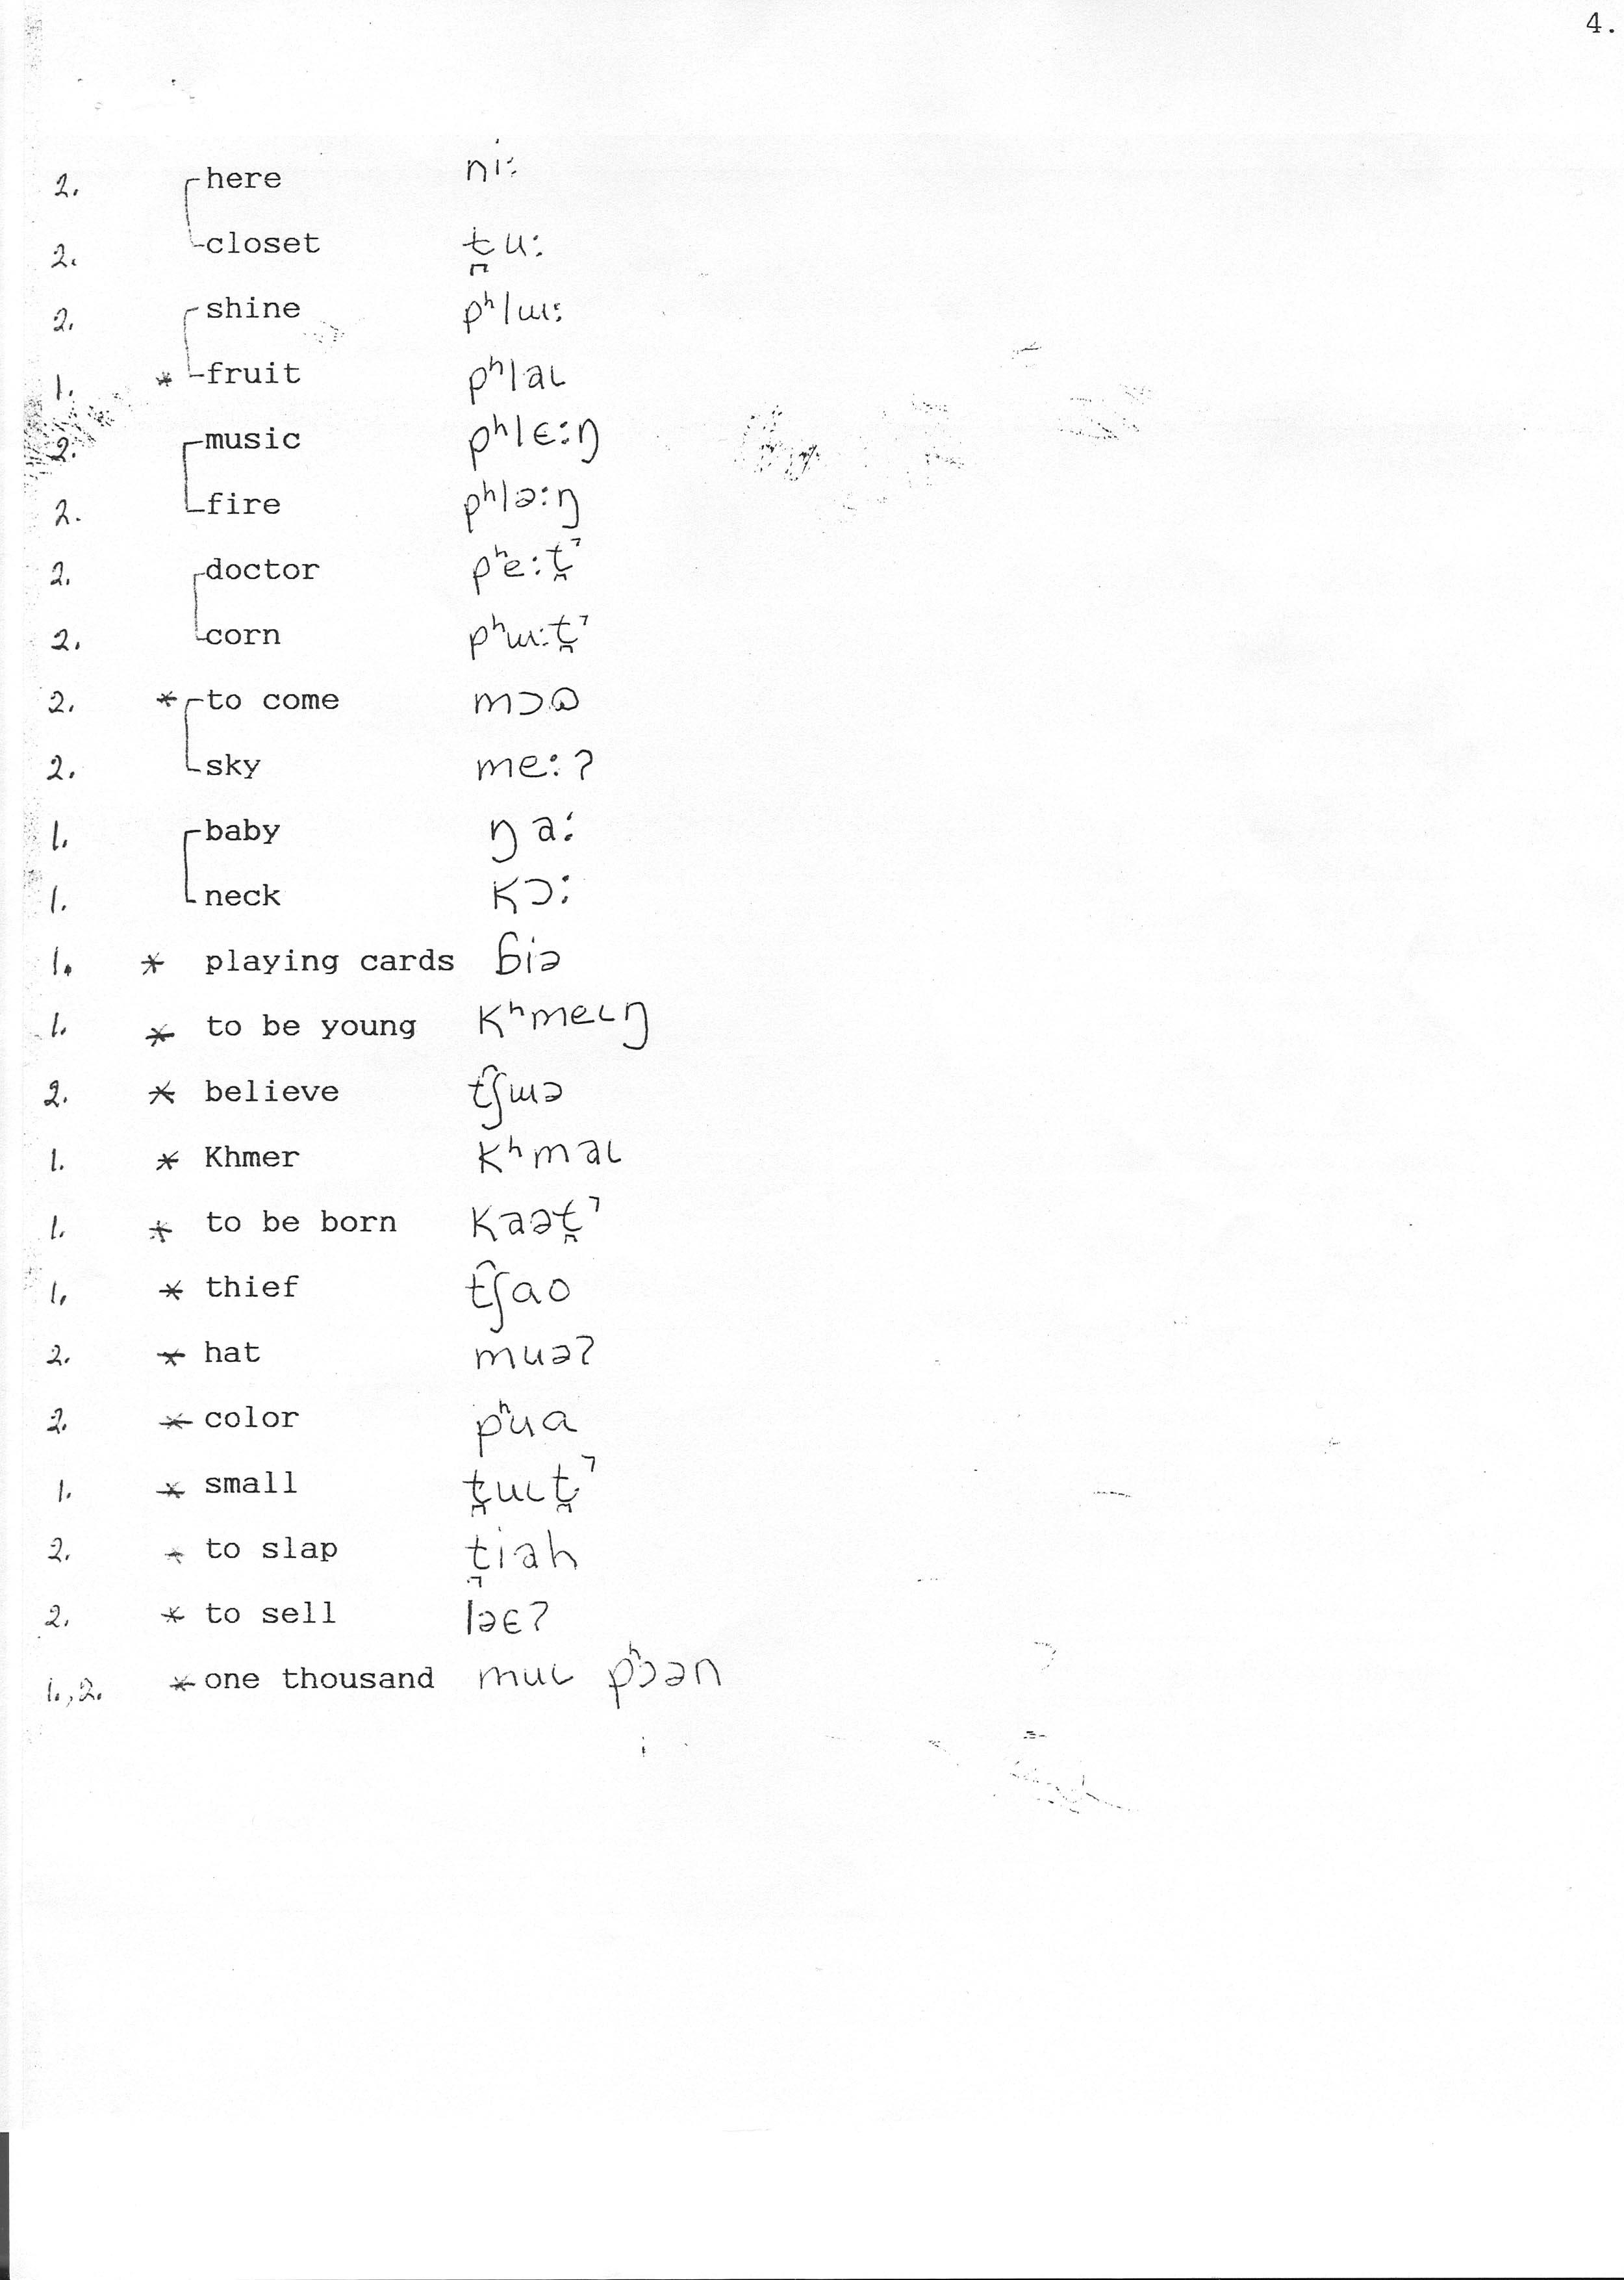 4.
2. here niː
2. closet t̪uː
2. shine pʰlɯː
1. * fruit pʰlaɩ
2. music pʰlɛːŋ
2. fire pʰləːŋ
2. doctor pʰeːt̪̚
2. corn pʰɯːt̪̚
2. * to come mɔɷ
2. sky meːʔ
1. baby ŋaː
1. neck kɔː
1. * playing cards ɓiə
1. * to be young kʰmeɩŋ
2. * believe t͡ʃɯə
1. * Khmer kʰmaɩ
1. * to be born kaət̪̚
1. * thief t͡ʃɑo
2. * hat muəʔ
2. * color pʰuɑ
1. * small t̪uɩt̪̚
2. * to slap t̪iah
2. * to sell ləɛʔ
1.,2. * one thousand muɩ pʰɔən